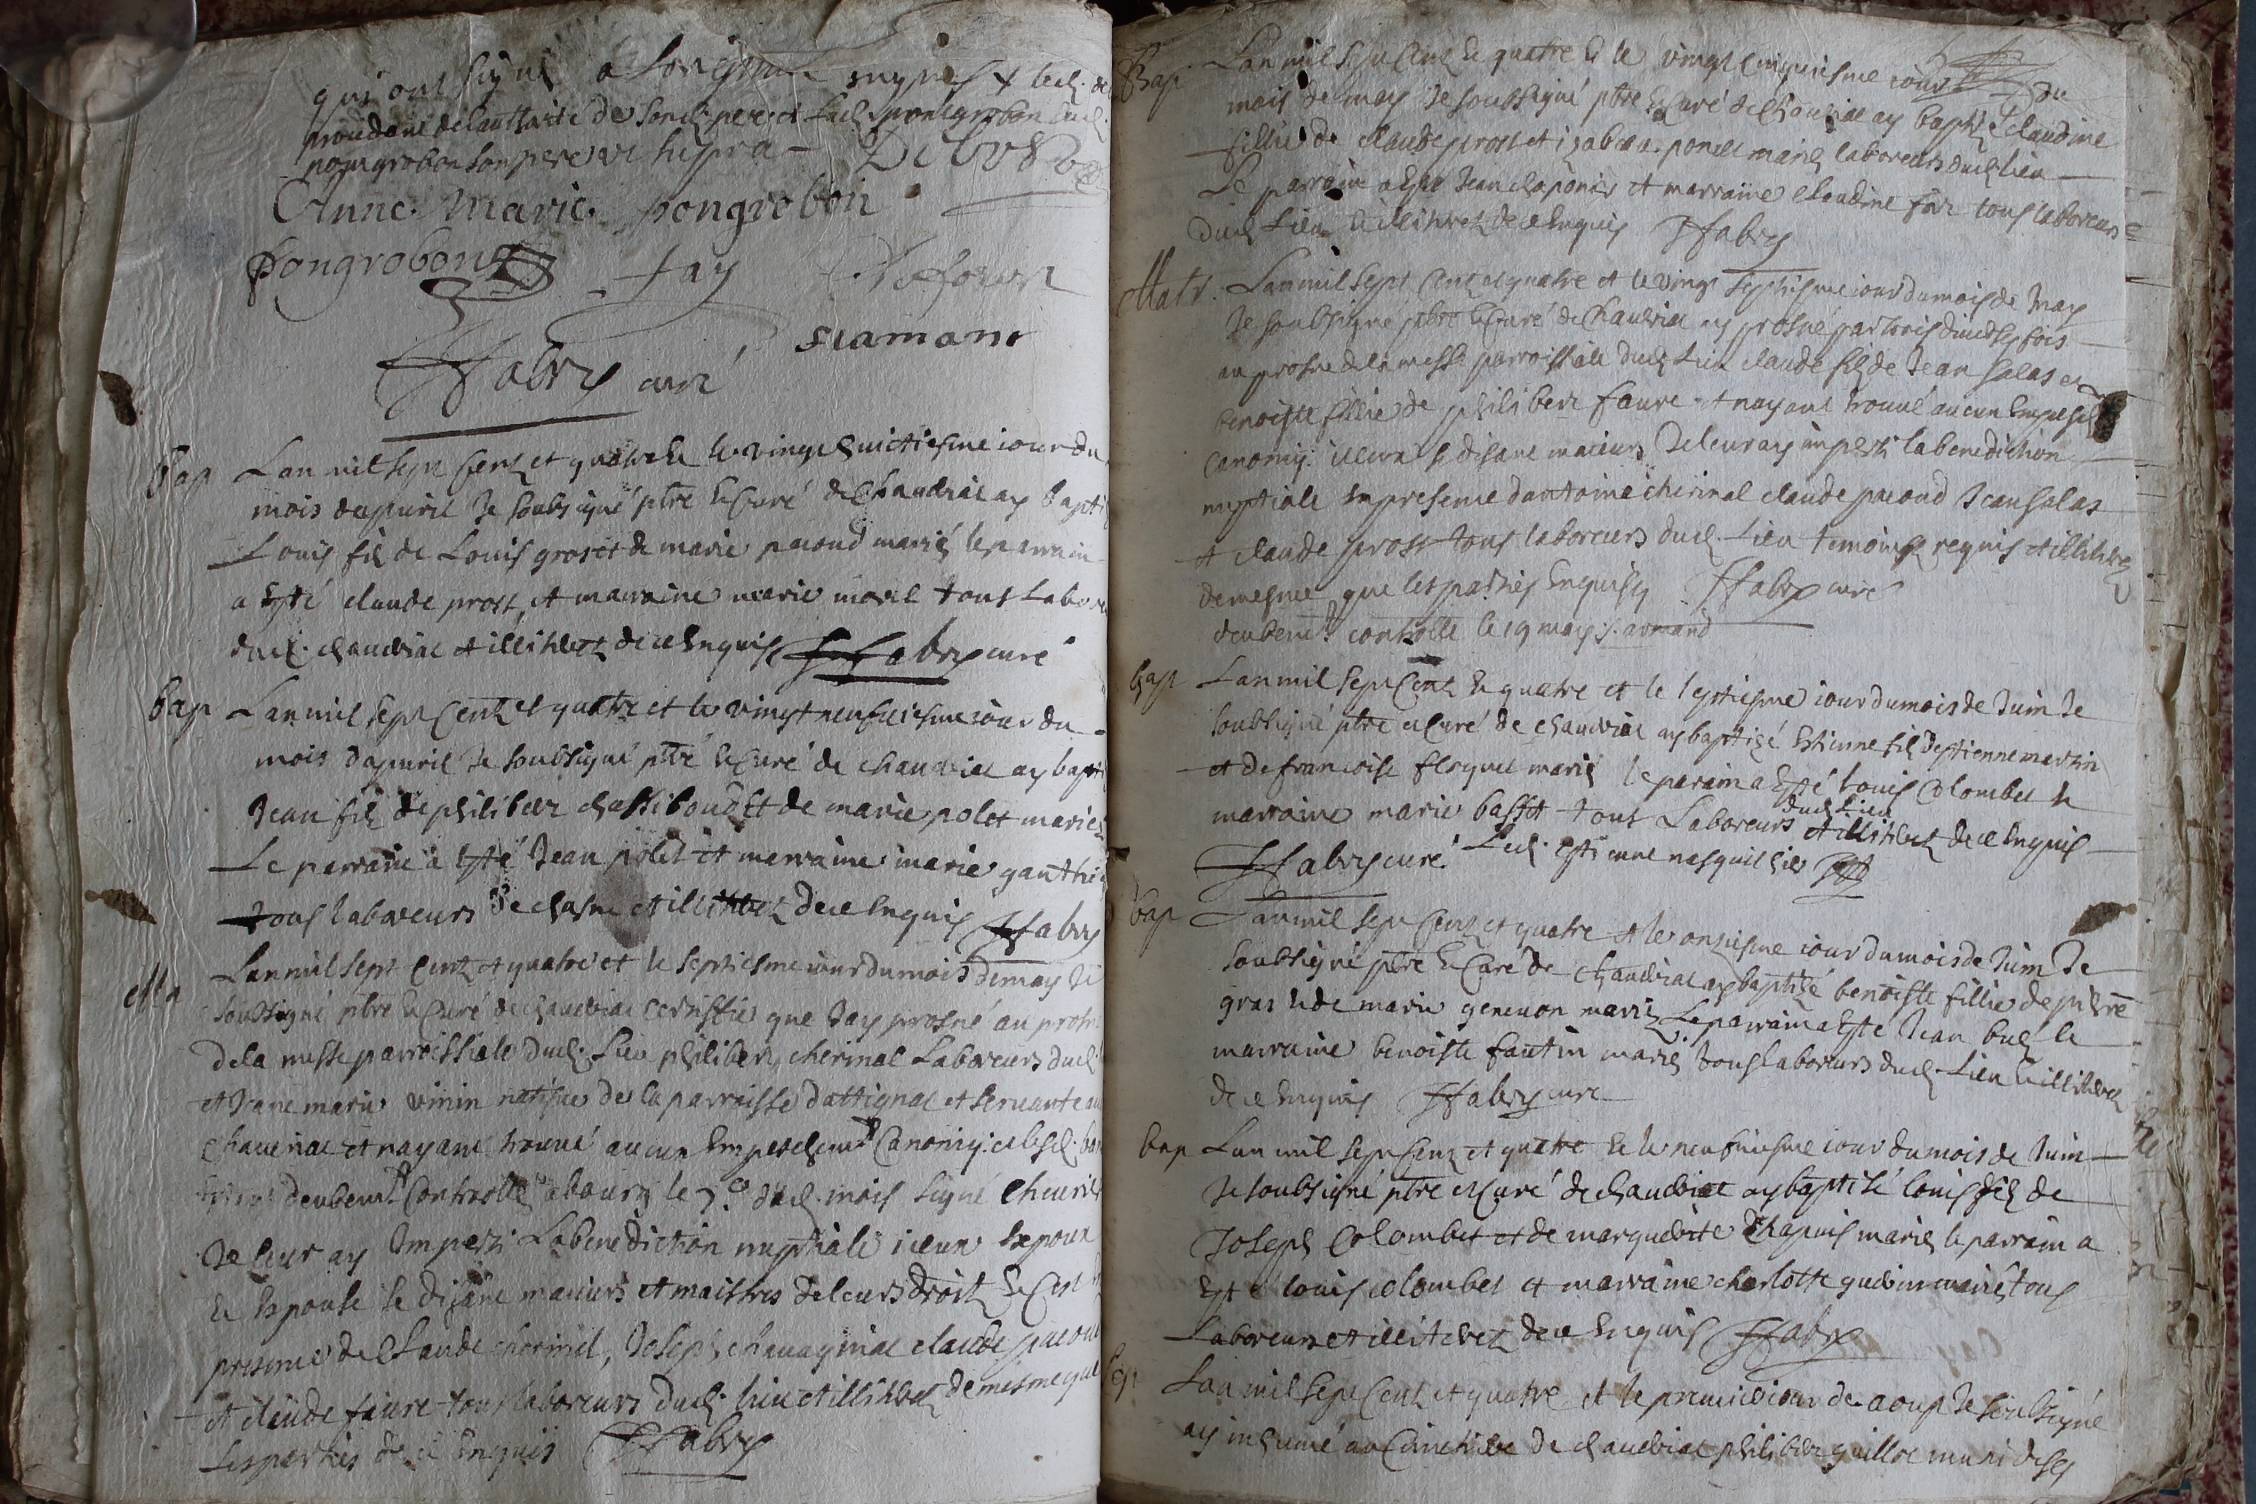 qui ont signé a
prondone de lauthorité de son pere et
pongrobon son pere
Anne. Marie. pongrobon
pongrobon fay
flamant
FFabry curé
bap Lan mil sept Centz et quatre et le vingt huictiesme iour du
mois dapuril Je soubsigné ptre et Curé de Chaveiriat ay bapti
Louis filz de Louis gros et de marie pacoud mariés le parrain
a Esté claude prost, et marraine marie morel tous Labor
dud. chaveiriat et illitretz de ce Enquis FFabry curé
bap Lan mil sept Centz et quatre et le vingt neufuiesme iour du
mois dapuril Je soubsigné ptre et Curé de chaveiriat ay bapti
Jean filz de philibert et de marie polet mariés
Le parrain a Esté Jean polet et marraine marie gauthi
tous laboreurs de chasne et illitretz de ce Enquis FFabry
Ma Lan mil sept Centz et quatre et le septiesme iour du mois de may Je
soubsigné ptre et Curé de chaveiriat certiffie que Jay prosné au prosn
de la messe parroissiale dud. Lieu philibert cherinal Laboreurs dud.
et Jane marie vinin natifue de la parroisse dattignat et seruante au
Chaveiriat et nayant trouué aucun Empeschemt Canoniq.
deubemt Controllé a bourg le 7e dud. mois signé cheurier
Je leur ay Imperti La benediction nuptiale iceux Espoux
et Espouse se disant maieurs et maistres de leurs droitz et Cest
presence de Claude cherinal, Joseph chavagniat claude pacoud
et claude faure tous laboreurs dud. lieu et illitretz de mesme que
les parties de ce Enquis FFabry
Bap Lan mil sept Cent et quatre et le vingt cinquiesme iour du
mois de may Je soussigné ptre et Curé de Chaveiriat ay baptisé claudine
fillie de claude prost et izabeau poncet mariés laboreurs dud. lieu
Le parrain a Esté Jean chaponet et marraine claudine for tous laboreurs
dud. Lieu et illitretz de ce Enquis FFabry
Matr. Lan mil sept Centz et quatre et le vingt septiesme iour du mois de May
Je soubsigné ptre et Curé de Chaveiriat ay prosné par trois diuerses fois
au prosne de la messe parroissiale dud. Lieu claude filz de Jean salas et
benoiste fillie de philibert faure et nayant trouué aucun Empesch
canoniq. iceux se disant maieurs Je leur ay imperti la benediction
nuptiale En presence dantoine cherinal claude pacoud Jean salas
et claude prost tous laboreurs dud. Lieu temoins requis et illitretz
de mesme que les parties Enquises FFabry curé
deubemt controllé le 19 may s. armand
bap Lan mil sept Centz et quatre et le septiesme iour du mois de Juin Je
soubsigné ptre et Curé de chaveiriat ay baptizé Estienne filz destienne martin
et de francoise floquet mariés le parrain a Esté Louis Colombet et
marraine marie basset tous Laboreurs dud. Lieu et illitretz de ce Enquis
FFabry curé Led. Estienne nasquit hier
bap Lan mil sept Centz et quatre et le onziesme iour du mois de Juin Je
soubsigné ptre et Curé de chaveiriat ay baptizé benoiste fillie de pierre
gras et de marie genevon mariés Le parrain a Esté Jean buez et
marraine benoiste fautin mariés tous laboreurs dud. Lieu et illitretz
de ce Enquis FFabry curé
bap Lan mil sept Centz et quatre et le neufuiesme iour du mois de Juin
Je soubsigné ptre et Curé de chaveiriat ay baptisé louis filz de
Joseph Colombet et de marguerite Chapuis mariés le parrain a
Esté louis colombet et marraine charlotte guerin mariés tous
Laboreurs et illitretz de ce Enquis FFabry
Lan mil sept Centz et quatre et le premier iour de aoust Je soubsigné
ay inhumé au Cimetiere de chaveiriat philibert guillot muni de ses